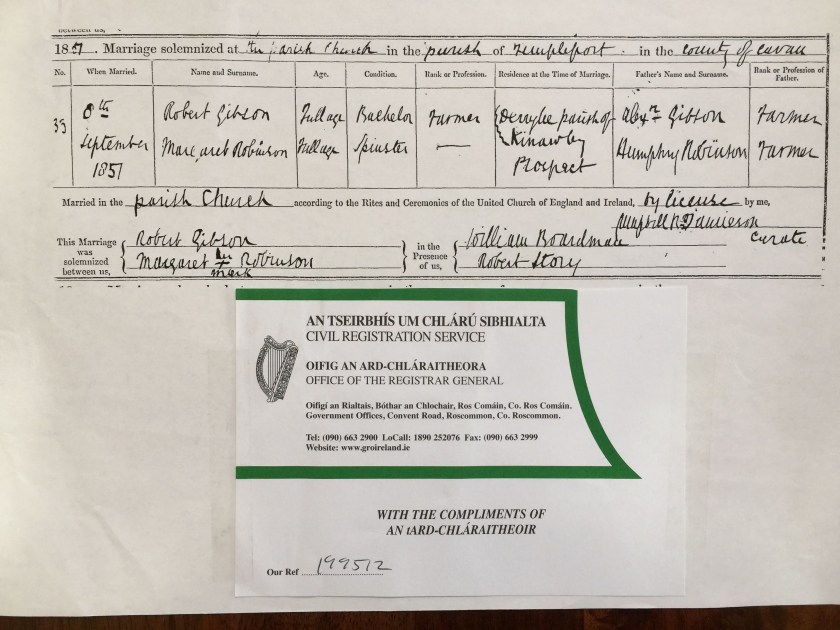 1851. Marriage solemnized at the parish Church in the parish of Templeport. in the county of Cavan
No. When Married. Name and Surname. Age. Condition. Rank or Profession. Residence at the Time of Marriage. Father's Name and Surname. Rank or Profession of Father.
33 8th September 1851
Robert Gibson Full age Bachelor Farmer Derrylee parish of Kinawley Alexr Gibson Farmer
Margaret Robinson Full age Spinster — Prospect Humphry Robinson Farmer
Married in the parish Church according to the Rites and Ceremonies of the United Church of England and Ireland, by license by me,
Jamieson
curate
This Marriage was solemnized between us, Robert Gibson in the Presence of us, William Boardman
Margaret her x mark Robinson Robert Story
AN TSEIRBHÍS UM CHLÁRÚ SIBHIALTA
CIVIL REGISTRATION SERVICE
OIFIG AN ARD-CHLÁRAITHEORA
OFFICE OF THE REGISTRAR GENERAL
Oifigí an Rialtais, Bóthar an Chlochair, Ros Comáin, Co. Ros Comáin.
Government Offices, Convent Road, Roscommon, Co. Roscommon.
Tel: (090) 663 2900 LoCall: 1890 252076 Fax: (090) 663 2999
Website: www.groireland.ie
WITH THE COMPLIMENTS OF
AN tARD-CHLÁRAITHEOIR
Our Ref 199512